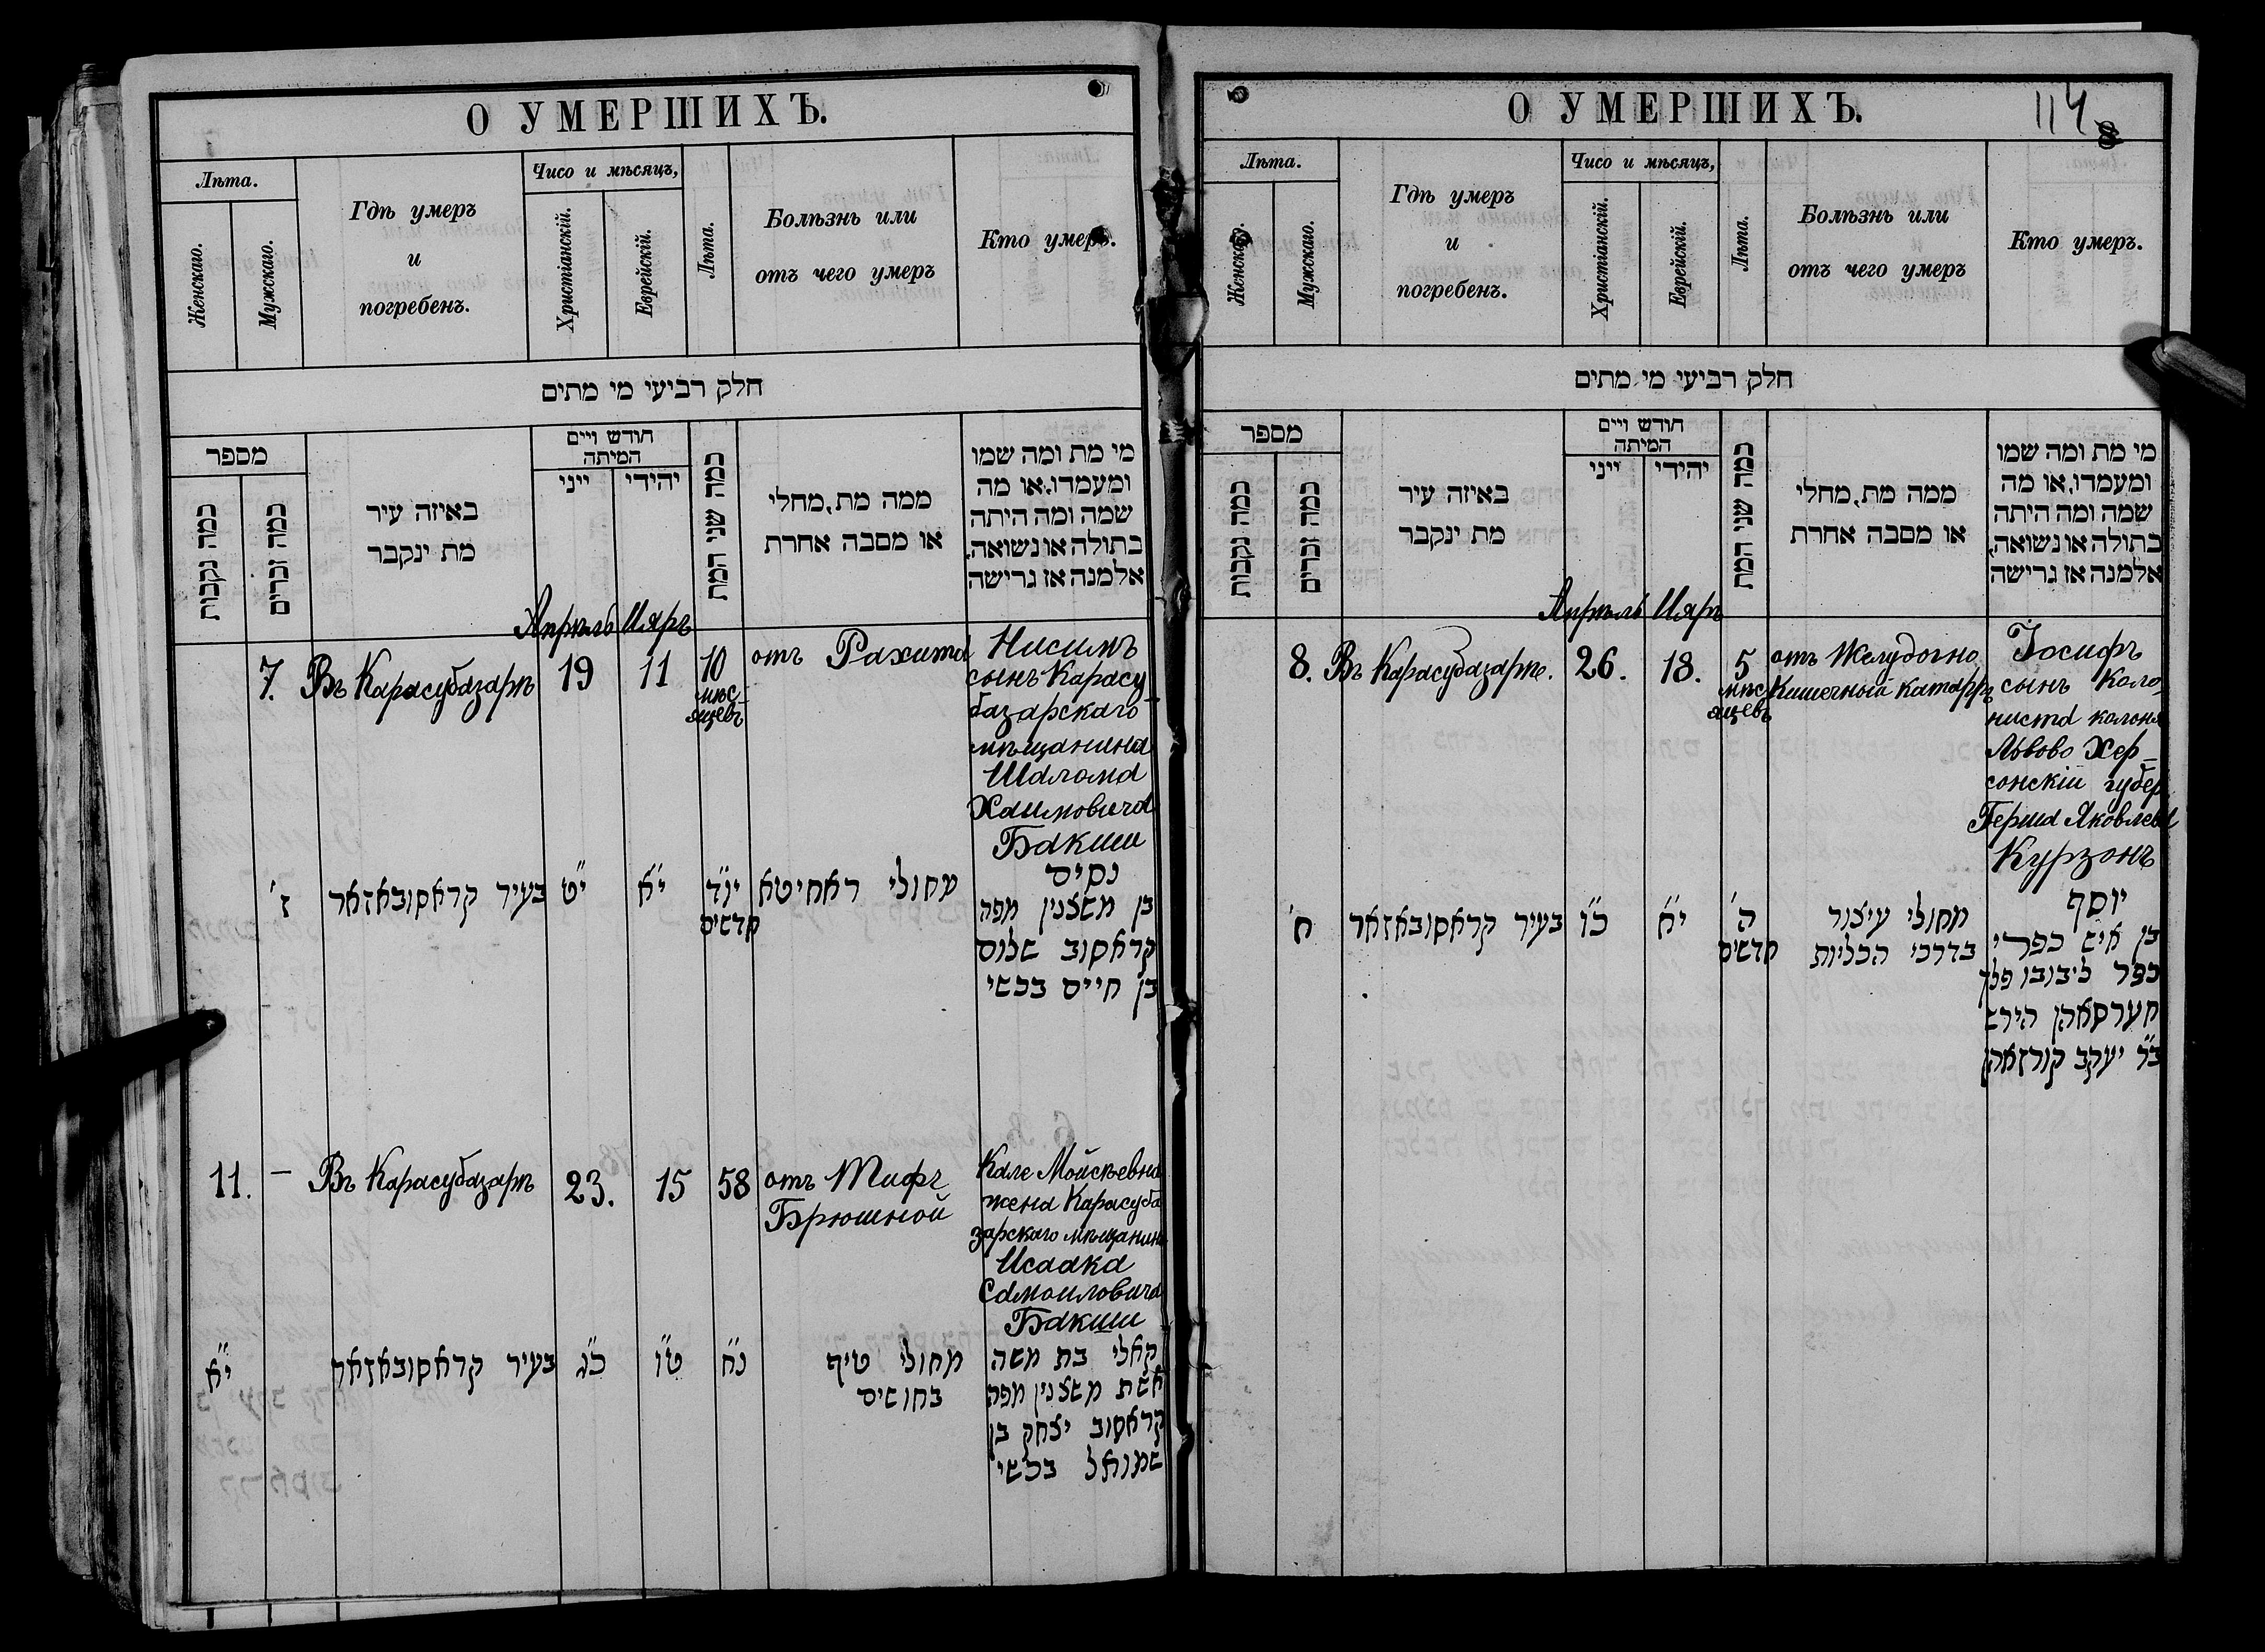 О УМЕРШИХЪ.
Лѣта.
Женскаго.
Мужскаго.
Гдѣ умеръ
и
погребенъ.
Чисо и мѣсяцъ,
Христіанскій.
Еврейскій.
Лѣта.
Болѣзнь или
отъ чего умеръ
Кто умеръ.
חלק רביעי מי מתים
מספר
כמה נקבות
כמה זכרים
באיזה עיר
מת ינקבר
חודש ויים
המיתה
ייני
יהידי
כמה שני המת
ממה מת, מחלי
או מסבה אחרת
מי מת ומה שמו
ומעמדו, או מה
שמה ומה היתה
בתולה או נשואה,
אלמנה אז גרישה
Апрѣль Ияръ
7.
Въ Карасубазарѣ
19
11
10
мѣс-
яцевъ
отъ Рахита
Нисимъ
сынъ Карасу
базарскаго
мѣщанина
Шалома
Хаимовича
Бакши
ז'
בעיר קראסובאזאר
י"ט
י"א
יו"ד
חדשים
מחולי ראחיטא
נסים
בן משצנין מפה
קראסוב שלום
בן חיים בכשי
11.
–
Въ Карасубазарѣ
23.
15
58
отъ Тифъ
Брюшной
Кале Мойсѣевна
жена Карасуба
зарскаго мѣщанина
Исаака
Самоиловича
Бакши
י"א
בעיר קראסובאזאר
כ"ג
ט"ו
נ"ח
מחולי טיף
בחושים
קאלי בת משה
אשת משצנין מפה
קראסוב יצחק בן
שמואל בכשי
О УМЕРШИХЪ.
114
Лѣта.
Женскаго.
Мужскаго.
Гдѣ умеръ
и
погребенъ.
Чисо и мѣсяцъ,
Христіанскій.
Еврейскій.
Лѣта.
Болѣзнь или
отъ чего умеръ
Кто умеръ.
חלק רביעי מי מתים
מספר
כמה נקבות
כמה זכרים
באיזה עיר
מת ינקבר
חודש ויים
המיתה
ייני
יהידי
כמה שני המת
ממה מת, מחלי
או מסבה אחרת
מי מת ומה שמו
ומעמדו, או מה
שמה ומה היתה
בתולה או נשואה,
אלמנה אז גרישה
Апрѣль Ияръ
8.
Въ Карасубазарѣ.
26.
18.
5
мѣс
яцевъ
отъ Желудочно
Кишечный катарръ
Іосифъ
сынъ коло-
ниста колон
Львово Хер-
сонскій губер
Герша Яковлева
Курзонъ
ח'
בעיר קראסובאזאר
כ"ו
י"א
ה'
חדשים
מחולי עיצור
בדרכי הכליות
יוסף
בן איש כפרי
כפר ליבובו פלך
חערסאהן הירש
ב"ר יעקב קורזאהן